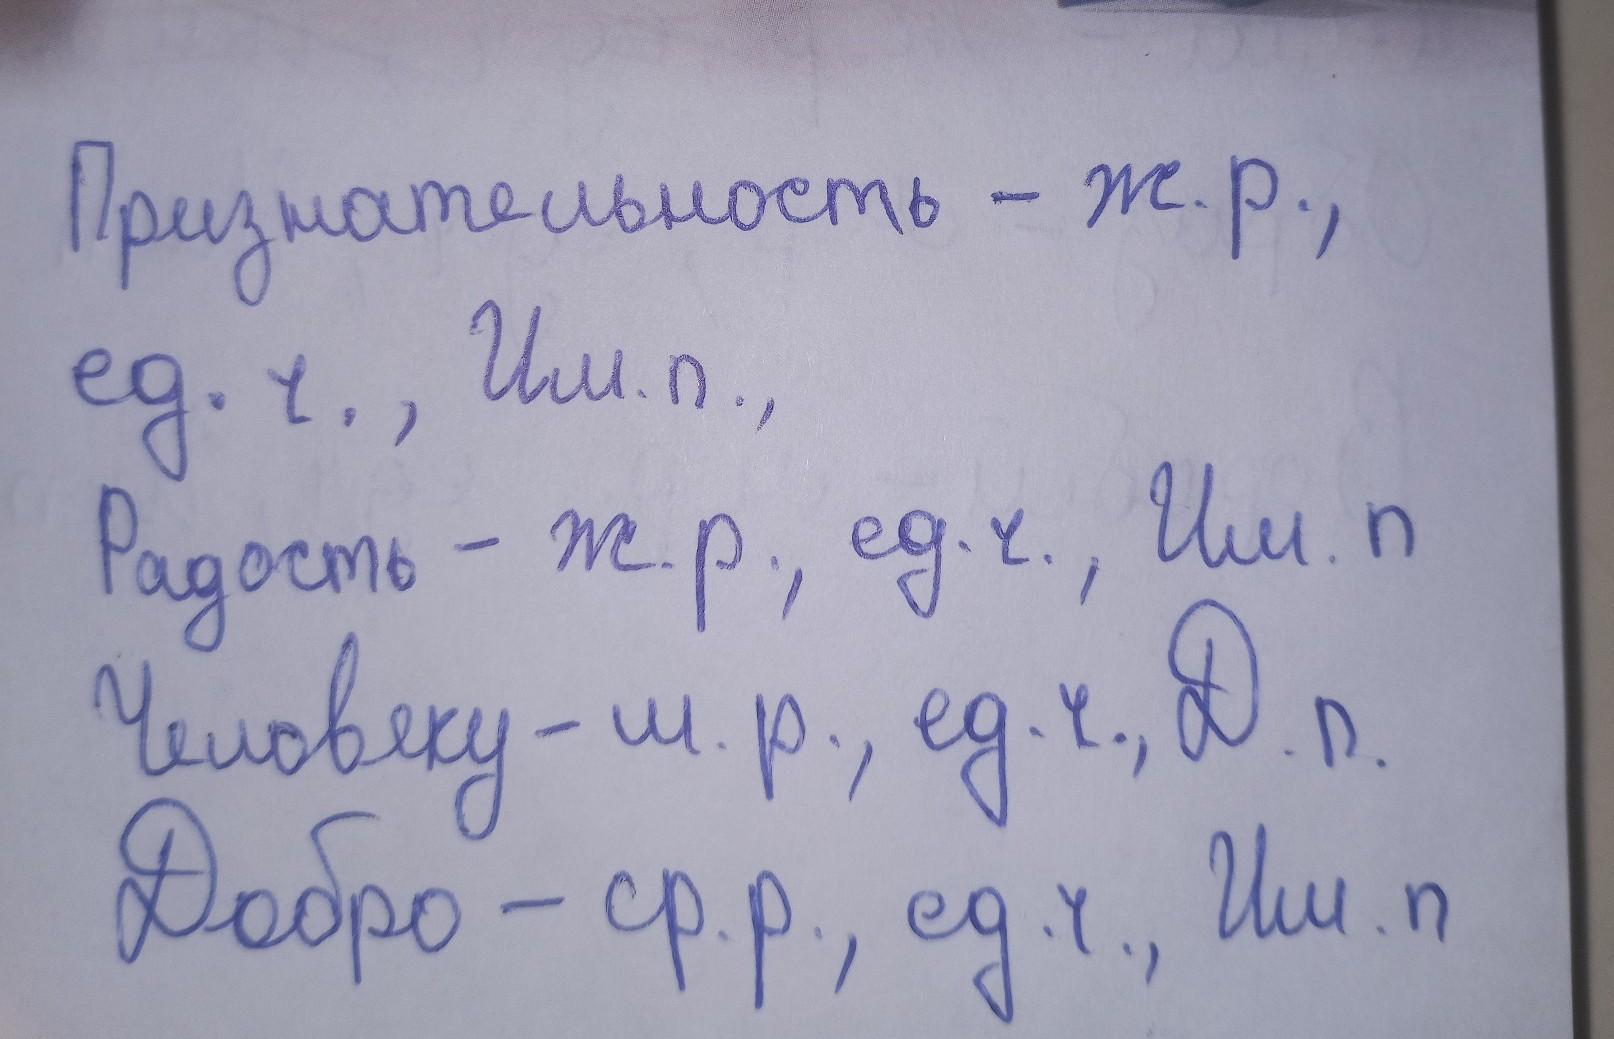 Признательность - ж.р.,
ед.ч., Им.п.,
Радость - ж.р., ед.ч., Им.п
Человеку - м.р., ед.ч., Д.п.
Добро - ср.р., ед.ч., Им.п